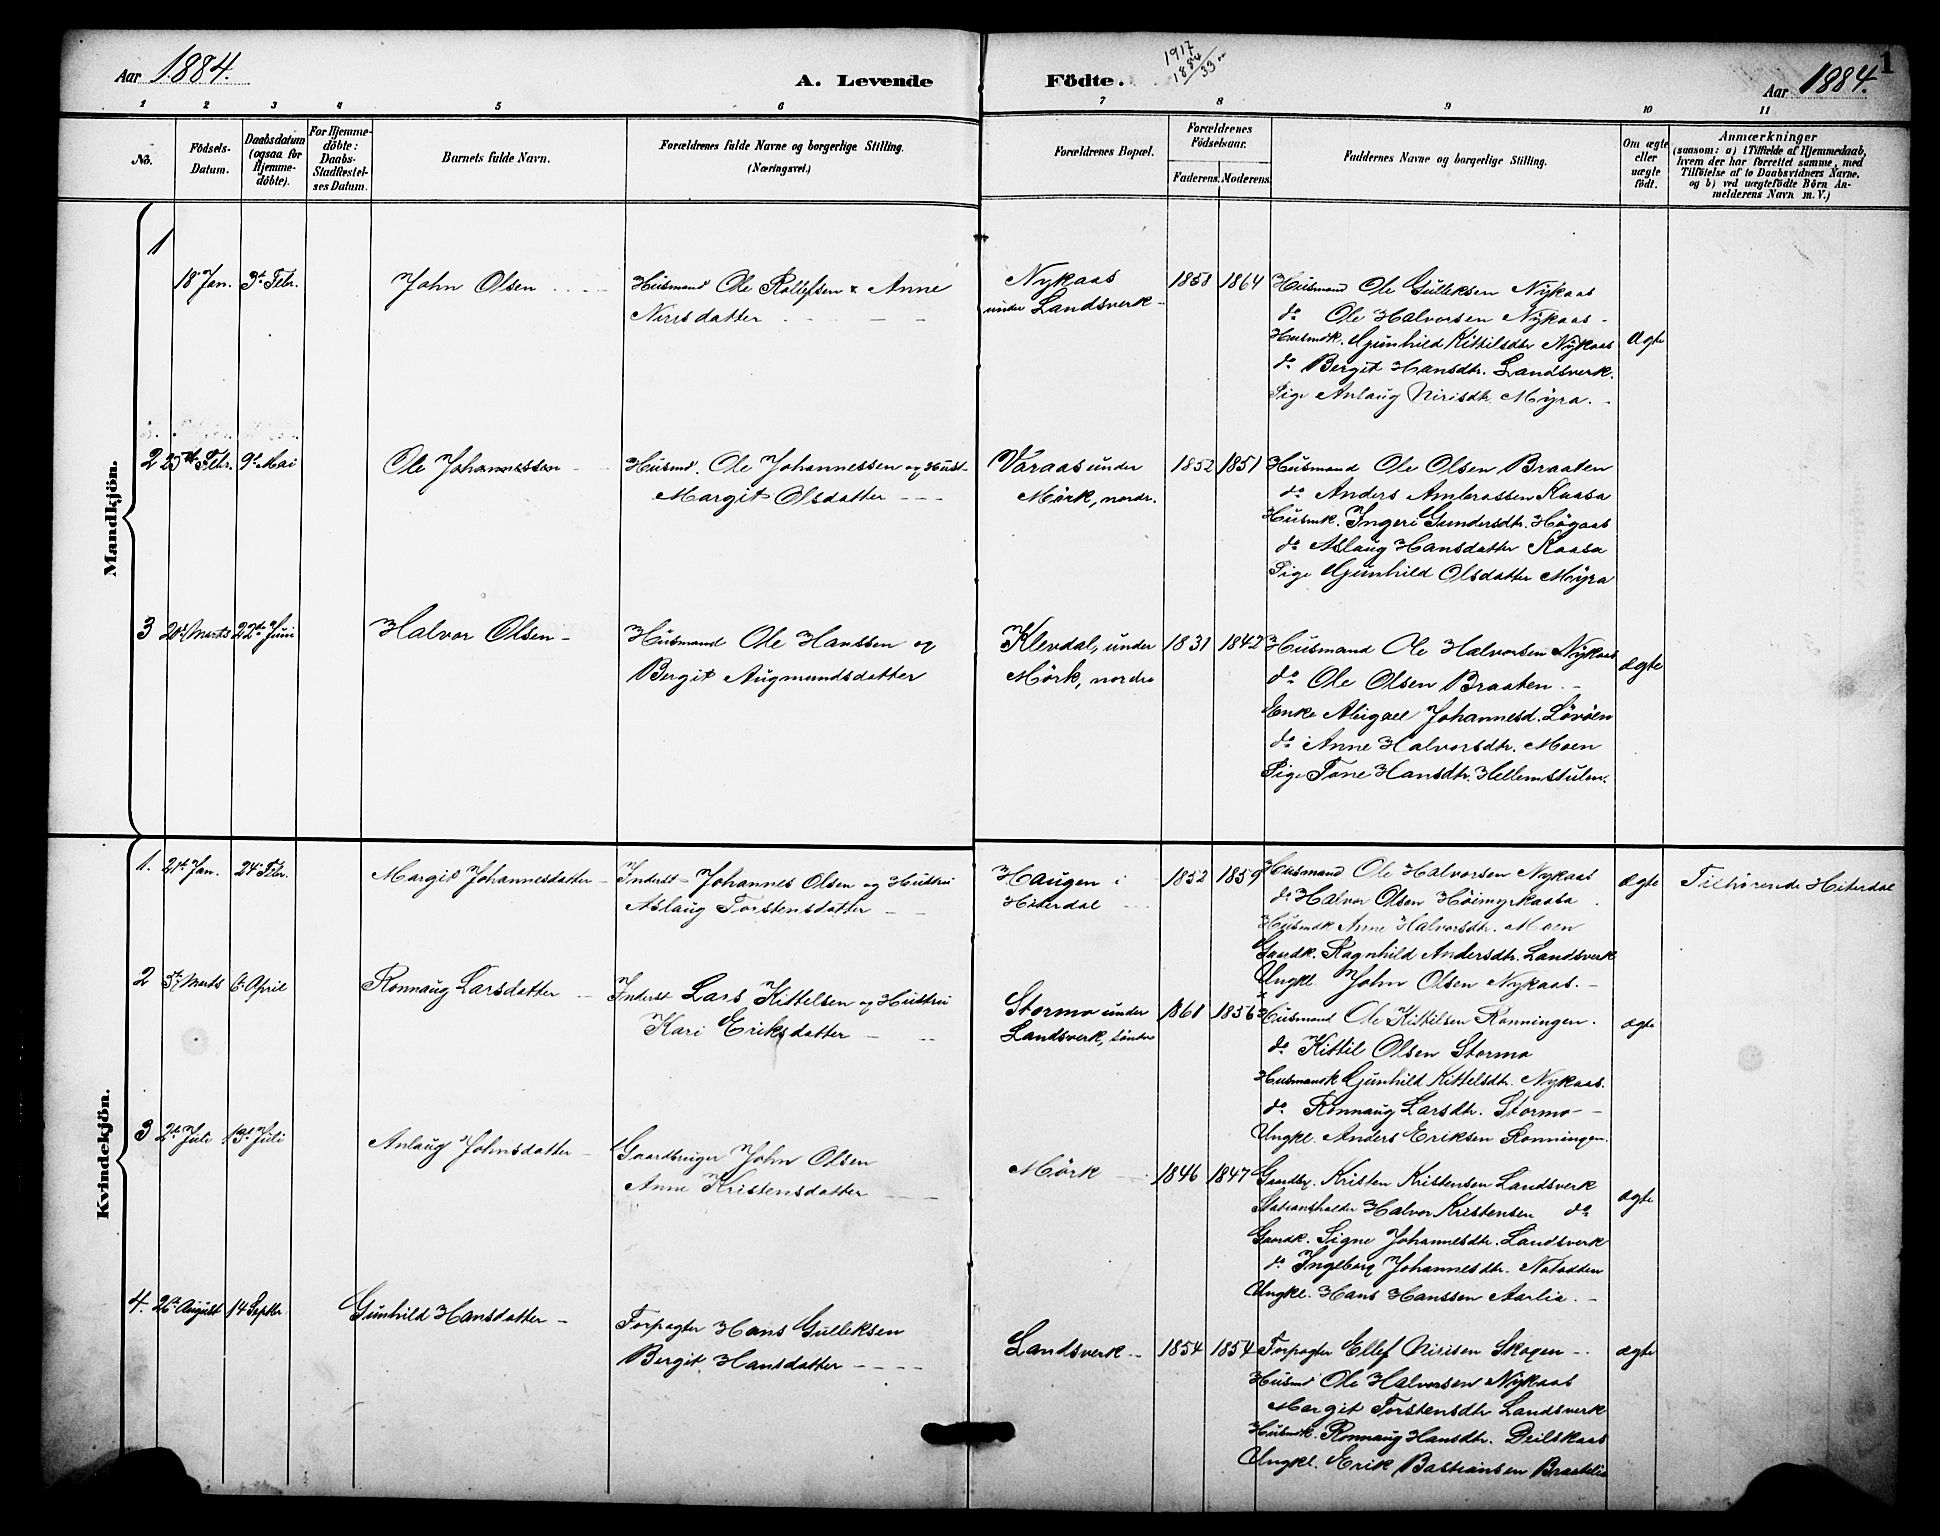 Aar 1884.
A. Levende
Födte.
1917
1884
33
Aar 1884.
1
1 2 3 4 5 6 7 8 9 10 11
No.
Födsels-
Datum.
Daabsdatum
(ogsaa for
Hjemme-
döbte).
For Hjemme-
döbte:
Daabs-
Stadfestel-
ses Datum.
Barnets fulde Navn.
Forældrenes fulde Navne og borgerlige Stilling.
(Næringsvei.)
Forældrenes Bopæl.
Forældrenes
Födselsaar.
Faderens. Moderens.
Faddernes Navne og borgerlige Stilling.
Om ægte
eller
uægte
födt.
Anmærkninger
(saasom: a) i Tilfælde af Hjemmedaab,
hvem der har forrettet samme, med
Tilföielse af to Daabsvidners Navne.
og b) ved uægtefödte Börn An-
melderens Navn m. V.)
Mandkjön.
1
18 Jan. 3 Febr. John Olsen
Husmand Ole Rollefsen & Anne
Nirisdatter
Nykaas
under Landsverk
1858 1864
Husmand Ole Gulleksen Nykaas
do Ole Halvorsen Nykaas
Husmdk. Gunhild Kittilsdtr Nykaas
do Bergit Hansdtr. Landsverk.
Pige Anlaug Nirisdtr. Myra.
ægte
2 Febr. 9d Mai Ole Johannessen
Husmd. Ole Johannessen og Hust-
Margit Olsdatter
Varaas under
Mörk, nordr.
1852 1851
Husmand Ole Olsen Braaten
do Anders Ambrossen Kaasa
Husmk. Ingeri Gundersdtr. Högaas
do Aslaug Hansdatter Kaasa
Pige Gunhild Olsdatter Myra
3 20d Marts 22de Juni Halvor Olsen
Husmand Ole Hanssen og
Bergit Augmundsdatter
Klevdal, under
Mörk, nordre
1831 1842
Husmand Ole Halvorsen Nykaas
do Ole Olsen Braaten.
Enke Abigael Johannesd. Lövöen
do Anne Halvorsdtr. Moen
Pige Tone Hansdtr. Hellemstulen.
ægte
Kvindekjön.
1. 21t Jan. 24 Febr. Margit Johannesdatter
Inderst Johannes Olsen og Hustru
Aslaug Torstensdatter
Haugen i
Hiterdal
1852 1859
Husmand Ole Halvorsen Nykaas
do Halvor Olsen Höimyrkaasa
Husmdk Anne Halvorsdtr. Moen
Gaardk. Ragnhild Andersdtr. Landsverk
Ungkl. John Olsen Nykaas.
ægte
Tilhörende Hiterdal
2 5te Marts 6 April Ronnaug Larsdatter
Inderst Lars Kittelsen og Hustru
Kari Eriksdatter
Stormo under
Landsverk, söndre
1861 1856
Husmand Ole Kittilsen Ronningen.
do Kittil Olsen Stormo
Husmansk Gunhild Kittelsdtr. Nykaas.
do Ronnaug Larsdtr. Stormo
Ungkl. Anders Eriksen Ronningen.
ægte
3 2de Juli 13d Juli Anlaug Johnsdatter
Gaardbruger John Olsen
Anne Kristensdatter
Mörk
1846 1847
Gaardbr. Kristen Kristensen Landsverk
Stationsholder Halvor Kristensen do
Gaardk. Signe Johannesdtr. Landsverk
do Ingeborg Johannesdtr. Notodden
Ungkl. Hans Hanssen Aarlia.
ægte
4. 26 August 14 Septbr. Gunhild Hansdatter
Forpagter Hans Gulleksen
Bergit Hansdatter
Landsverk
1854 1854
Forpagter Ellef Nirisen Skogen
Husmd Ole Halvorsen Nykaas
Margit Torstensdtr Landsverk
Husmdk. Ronnaug Hansdtr. Deilskaas
Ungkl. Erik Bastiansen Braatelia
ægte